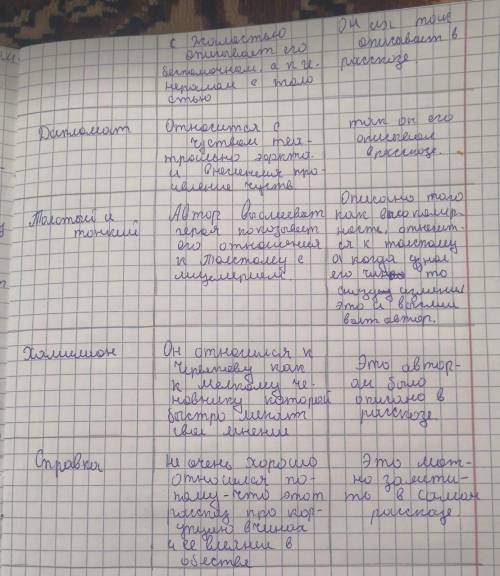 с жалостью
описывает его
беспомочном, а к ге-
нералам с толо
стью
Он их тоже
описывает в
рассказе
Дипломат
Относится с
чуством теа-
трально
и внешнем про-
явление чуств.
так он его
описывал
в рассказе.
Толстый и
тонкий
Автор высмеивает
героя показывает
его отношения
к толстому с
лицемерием.
Описано того
как высокомер-
ность, относит-
ся к толстому
а когда узнал
его чин то
сразу изменил
это и высмеи
вает автор.
Хамилион
Он относился к
Черятову как
к мелкому чи-
новнику который
быстро меняет
свое мнение
Это автор-
ом было
описано в
рассказе
Справка
Не очень хорошо
относился по-
тому-что этот
рассказ про кор-
упцию в чинах
и ее влеяние в
обестве
Это мож-
но замети-
ть в самом
рассказе